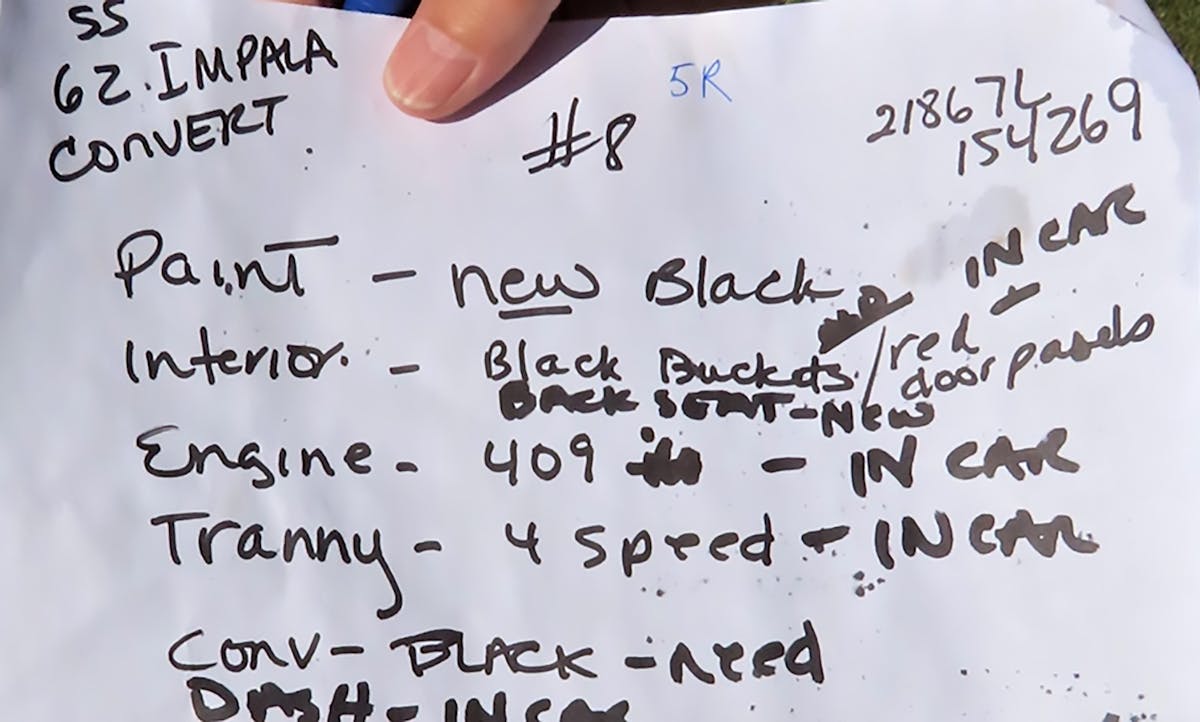 SS
62. IMPALA
CONVERT
#8
5R
218674
154269
Paint - new Black
IN CAR
Interior. - Black Buckets / red door panels
BACK SEAT - NEW
Engine - 409 - IN CAR
Tranny - 4 Speed - IN CAR
Conv - BLACK - need
DASH - IN CAR